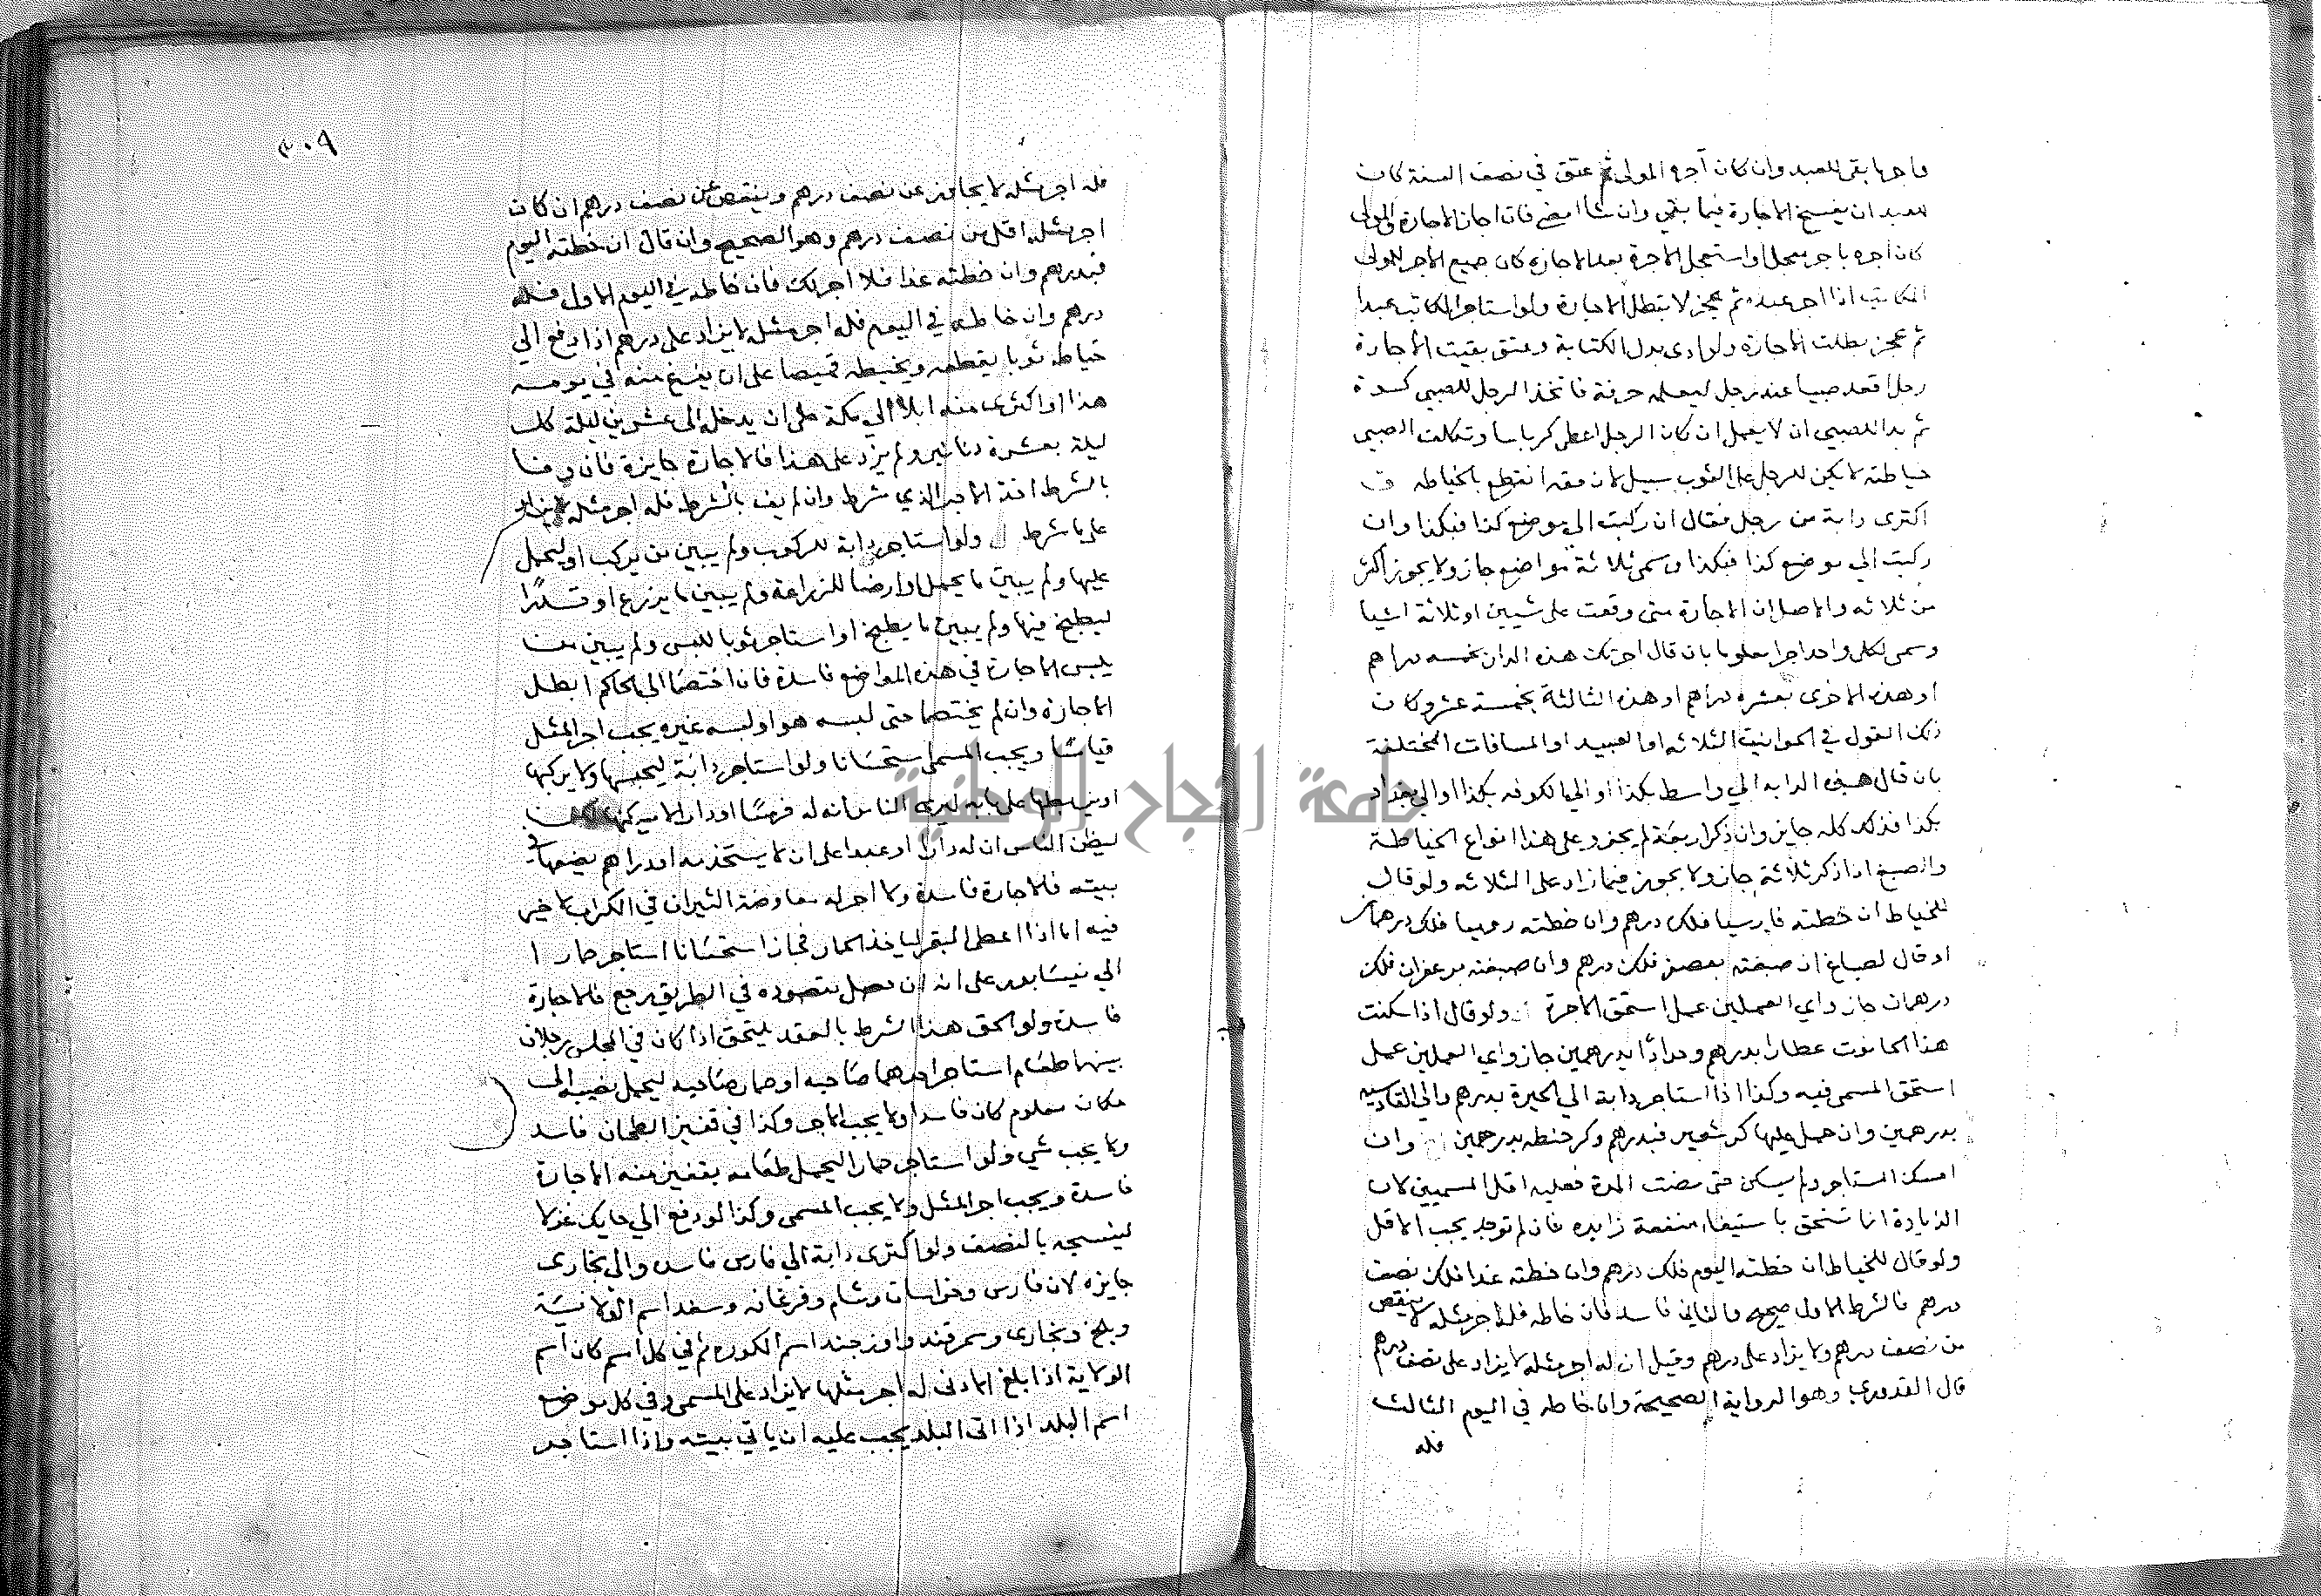 فاجر ما بقى للعبد وان كان آجره المولى ثم عتق في نصف السنة كان
للعبد ان يفسخ الاجارة فيما بقي وان شا امضى فان اجاز الاجارة المولى
كان اجره باجر معجل او استعجل الاجرة بعد الاجازه كان جميع الاجر للمولى
المكاتب اذا اجر عبده ثم عجز لا بتطل الاجارة ولو استاجر المكاتب عبدا
ثم عجز بطلت الاجازه ولو ادى بدل الكتابة وعتق بقيت الاجارة
رجل اقعد صبيا عند رجل ليعلمه حرفة فاتخذ الرجل للصبي كسوة
ثم بدا للصبي ان لا يعمل ان كان الرجل اعطى كرباسا وتكلف الصبي
خياطته لا يكن للرجل على الثوب سبيل لان حقه انقطع بالخياطه
اكترى دابة من رجل فقال ان ركبت الى موضع كذا فبكذا وان
ركبت الى موضع كذا فبكذا وسمى ثلاثة مواضع جاز ولا يجوز اكثر
من ثلاثه والاصل ان الاجارة متى وقعت على شيين او ثلاثة اشيا
وسمى لكل واحد اجرا معلوما بان قال اجرتك هذه الدار بخمسه دراهم
او هذه الاخرى بعشره دراهم او هذه الثالثة بخمسة عشر وكان
ذلك القول في الحوانيت الثلاثه او العبيد او المسافات المختلفة
بان قال هذه الدابه الى واسط بكذا او الى الكوفه بكذا او الى بغداد
بكذا فذلك كله جايز وان ذكر اربعة لم يجز وعلى هذا انواع الخياطة
والصبغ اذا ذكر ثلاثة جاز ولا يجوز فيما زاد على الثلاثه ولو قال
للخياط ان خطته فارسيا فلك درهم وان خطته روميا فلك درهمان
او قال لصباغ ان صبغته بعصفر فلك درهم وان صبغته بزعفران فلك
درهمان جاز واي العملين عمل استحق الاجرة ولو قال اذا سكنت
هذا الحانوت عطارا بدرهم وحدادا بدرهمين جاز واي العملين عمل
استحق المسمى فيه وكذا اذا استاجر دابة الى الحيرة بدرهم والى القادسيه
بدرهمين وان حمل عليها كر شعير فبدرهم وكر حنطه بدرهمين وان
امسك المستاجر ولم يسكن حتى مضت المدة فعليه اقل المسميين لان
الزيادة انما تستحق باستيفاء منفعة زايده فان لم توجد يجب الاقل
ولو قال للخياط ان خطته اليوم فلك درهم وان خطته غدا فلك نصف
درهم فالشرط الاول صحيح والثاني فاسد فان خاطه فله اجر مثله لا ينقص
من نصف درهم ولا يزاد على درهم وقيل ان له اجر مثله لا يزاد على نصف درهم
قال القدوري وهو الرواية الصحيحة وان خاطه في اليوم الثالث
فله
٣٠٩
فله اجر مثله لا يجاوز عن نصف درهم وينقص عن نصف درهم ان كان
اجر مثله اقل من نصف درهم وهو الصحيح وان قال ان خطته اليوم
فبدرهم وان خطته غدا فلا اجر لك فان خاطه في اليوم الاول فله
درهم وان خاطه في اليوم فله اجر مثله لا يزاد على درهم اذا دفع الى
خياط ثوبا يقطعه ويخيطه قميصا على ان يفرغ منه في يومه
هذا او اكترى منه ابلا الى مكة على ان يدخله الى عشرين ليلة كل
ليلة بعشرة دنانير ولم يزد على هذا فالاجارة جايزة فان وفا
بالشرط اخذ الاجر الذي شرط وان لم يف بالشرط فله اجر مثله لا يزاد
على ما شرط ولو استاجر دابة للركوب ولم يبين من يركب او ليحمل
عليها ولم يبين ما يحمل او ارضا للزراعة ولم يبين ما يزرع او قدرا
ليطبخ فيها ولم يبين ما يطبخ او استاجر ثوبا للبس ولم يبين من
يلبس الاجارة في هذه المواضع فاسدة فان اختصما الى الحاكم ابطل
الاجازه وان لم يختصما حتى لبسه هو او لبسه غيره يجب اجر المثل
قياسا ويجب المسمى استحسانا ولو استاجر دابة ليحبسها ولا يركبها
او يربطها على بابه ليرى الناس انه له فرسا او دارا لا يسكنها
ليظن الناس ان له دارا او عبدا على ان لا يستخدمه او دراهم يضعها في
بيته فالاجارة فاسدة ولا اجر له معاوضة الثيران في الكراب لا خير
فيه اما اذا اعطى البقر لياخذ الحمار فجاز استحسانا استاجر حمارا
الى نيسابور على انه ان حصل مقصوده في الطريق رجع فالاجارة
فاسدة ولو الحق هذا الشرط بالعقد يلتحق اذا كان في المجلس رجلان
بينهما طعام استاجر احدهما صاحبه او حمار صاحبه ليحمل نصيبه الى
مكان معلوم كان فاسدا ولا يجب الاجر وكذا في قفيز الطحان فاسد
ولا يجب شي ولو استاجر حمارا ليحمل طعامه بقفيز منه الاجارة
فاسدة ويجب اجر المثل ولا يجب المسمى وكذا لو دفع الى حايك غزلا
لينسجه بالنصف ولو اكترى دابة الى فارس فاسد والى بخارى
جايزه لان فارس وخراسان وشام وفرغانه وسغد اسم الولاية
وبلخ وبخارى وسمرقند واوزجند اسم الكورة ثم في كل اسم كان اسم
الولاية اذا بلغ الادنى له اجر مثلها لا يزاد على المسمى وفي كل موضع
اسم البلد اذا اتى البلد يجب عليه ان ياتي بيته واذا استاجر
جامعة النجاح الوطنية